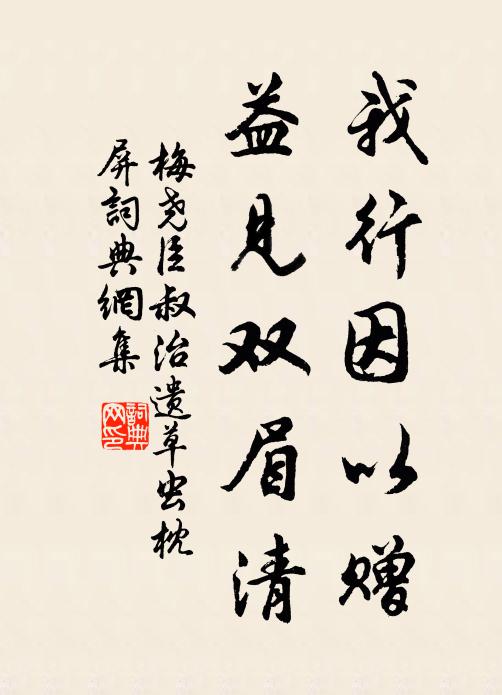 我行因以赠
益见双眉清
梅尧臣叔治遗草虫枕
屏詞典網集
詞典网印